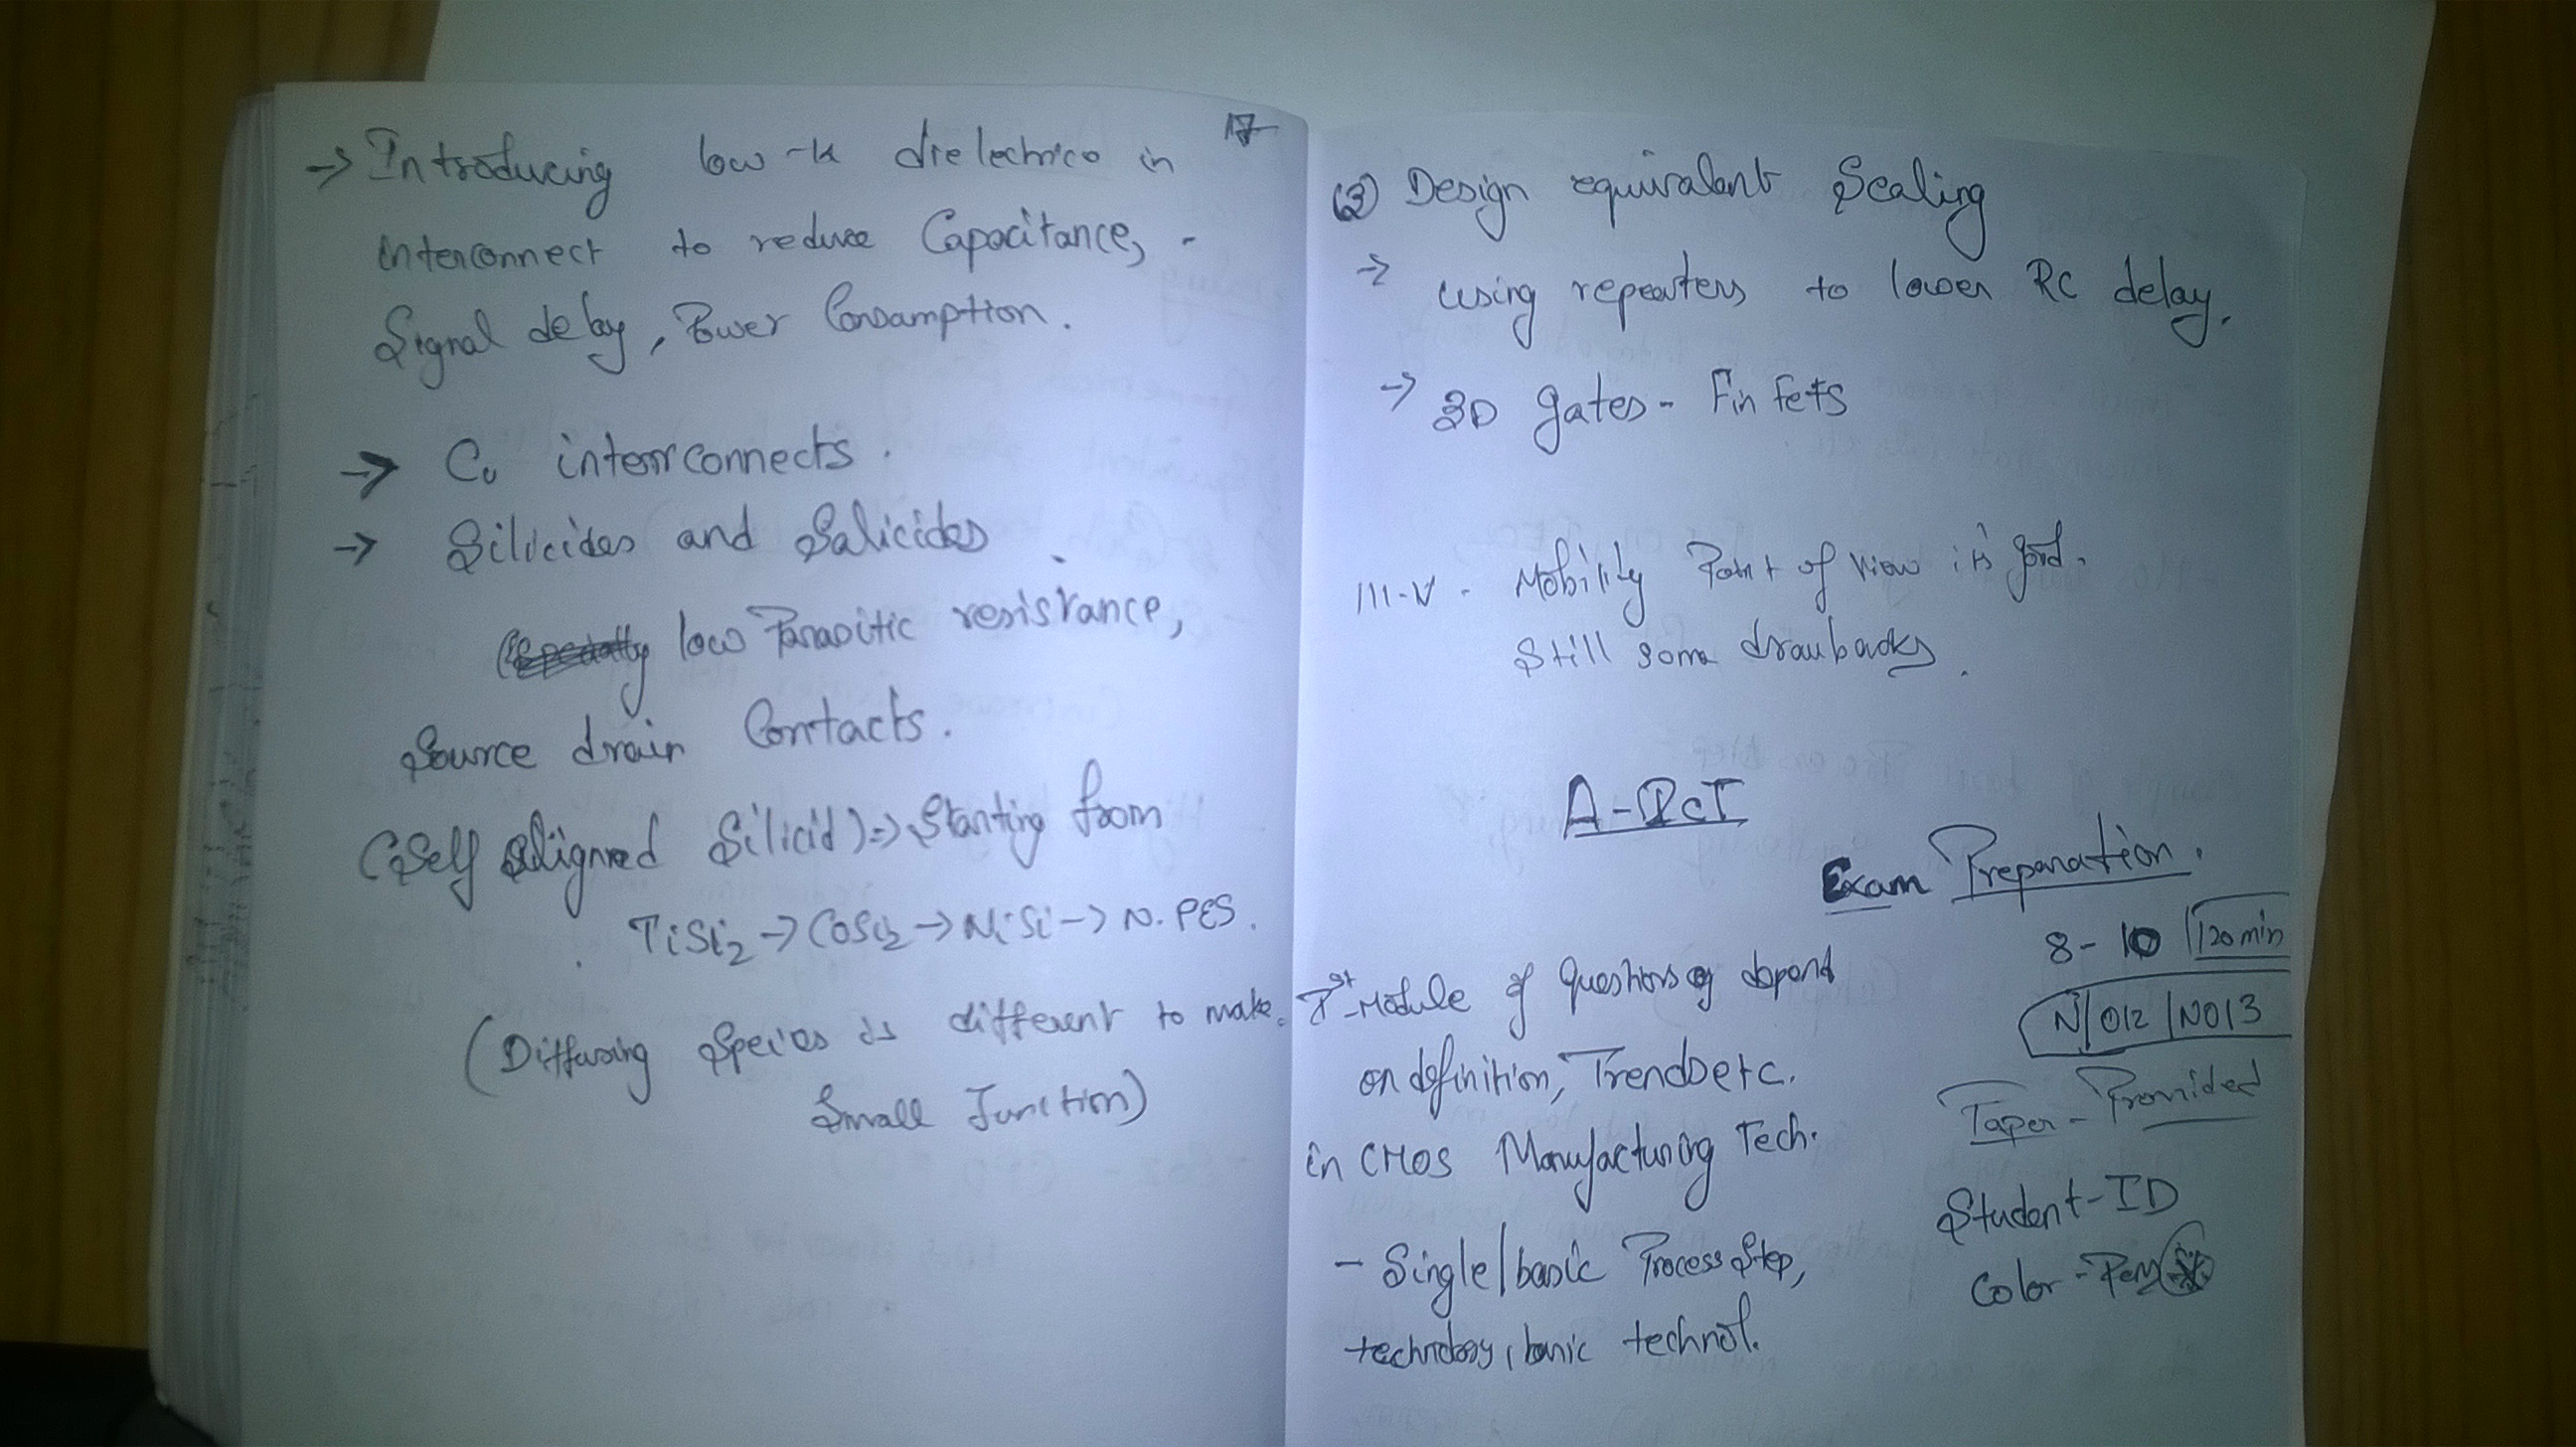 17
→ Introducing low-k dielectrics in
interconnect to reduce Capacitance, -
Signal delay, Power Consumption.
→ Cu interconnects.
→ Silicides and Salicides.
low Parasitic resistance,
Source drain Contacts.
(Self aligned Silicid) => Starting from
TiSi2 → CoSi2 → NiSi → N.PES.
(Diffusing Species is different to make
Small Junction)
(3) Design equivalent Scaling
→ using repeaters to lower RC delay.
→ 3D gates - Fin Fets
III-V - Mobility Point of view its good.
Still some drawbacks.
A-ICT
Exam Preparation.
8-10 120 min
N/012 / N013
Paper - Provided
Student-ID
Color-Pen
Ist-Module of Questions depend
on definition, Trends etc.
in CMOS Manufacturing Tech.
- Single/basic Process Step,
technology, basic technol.